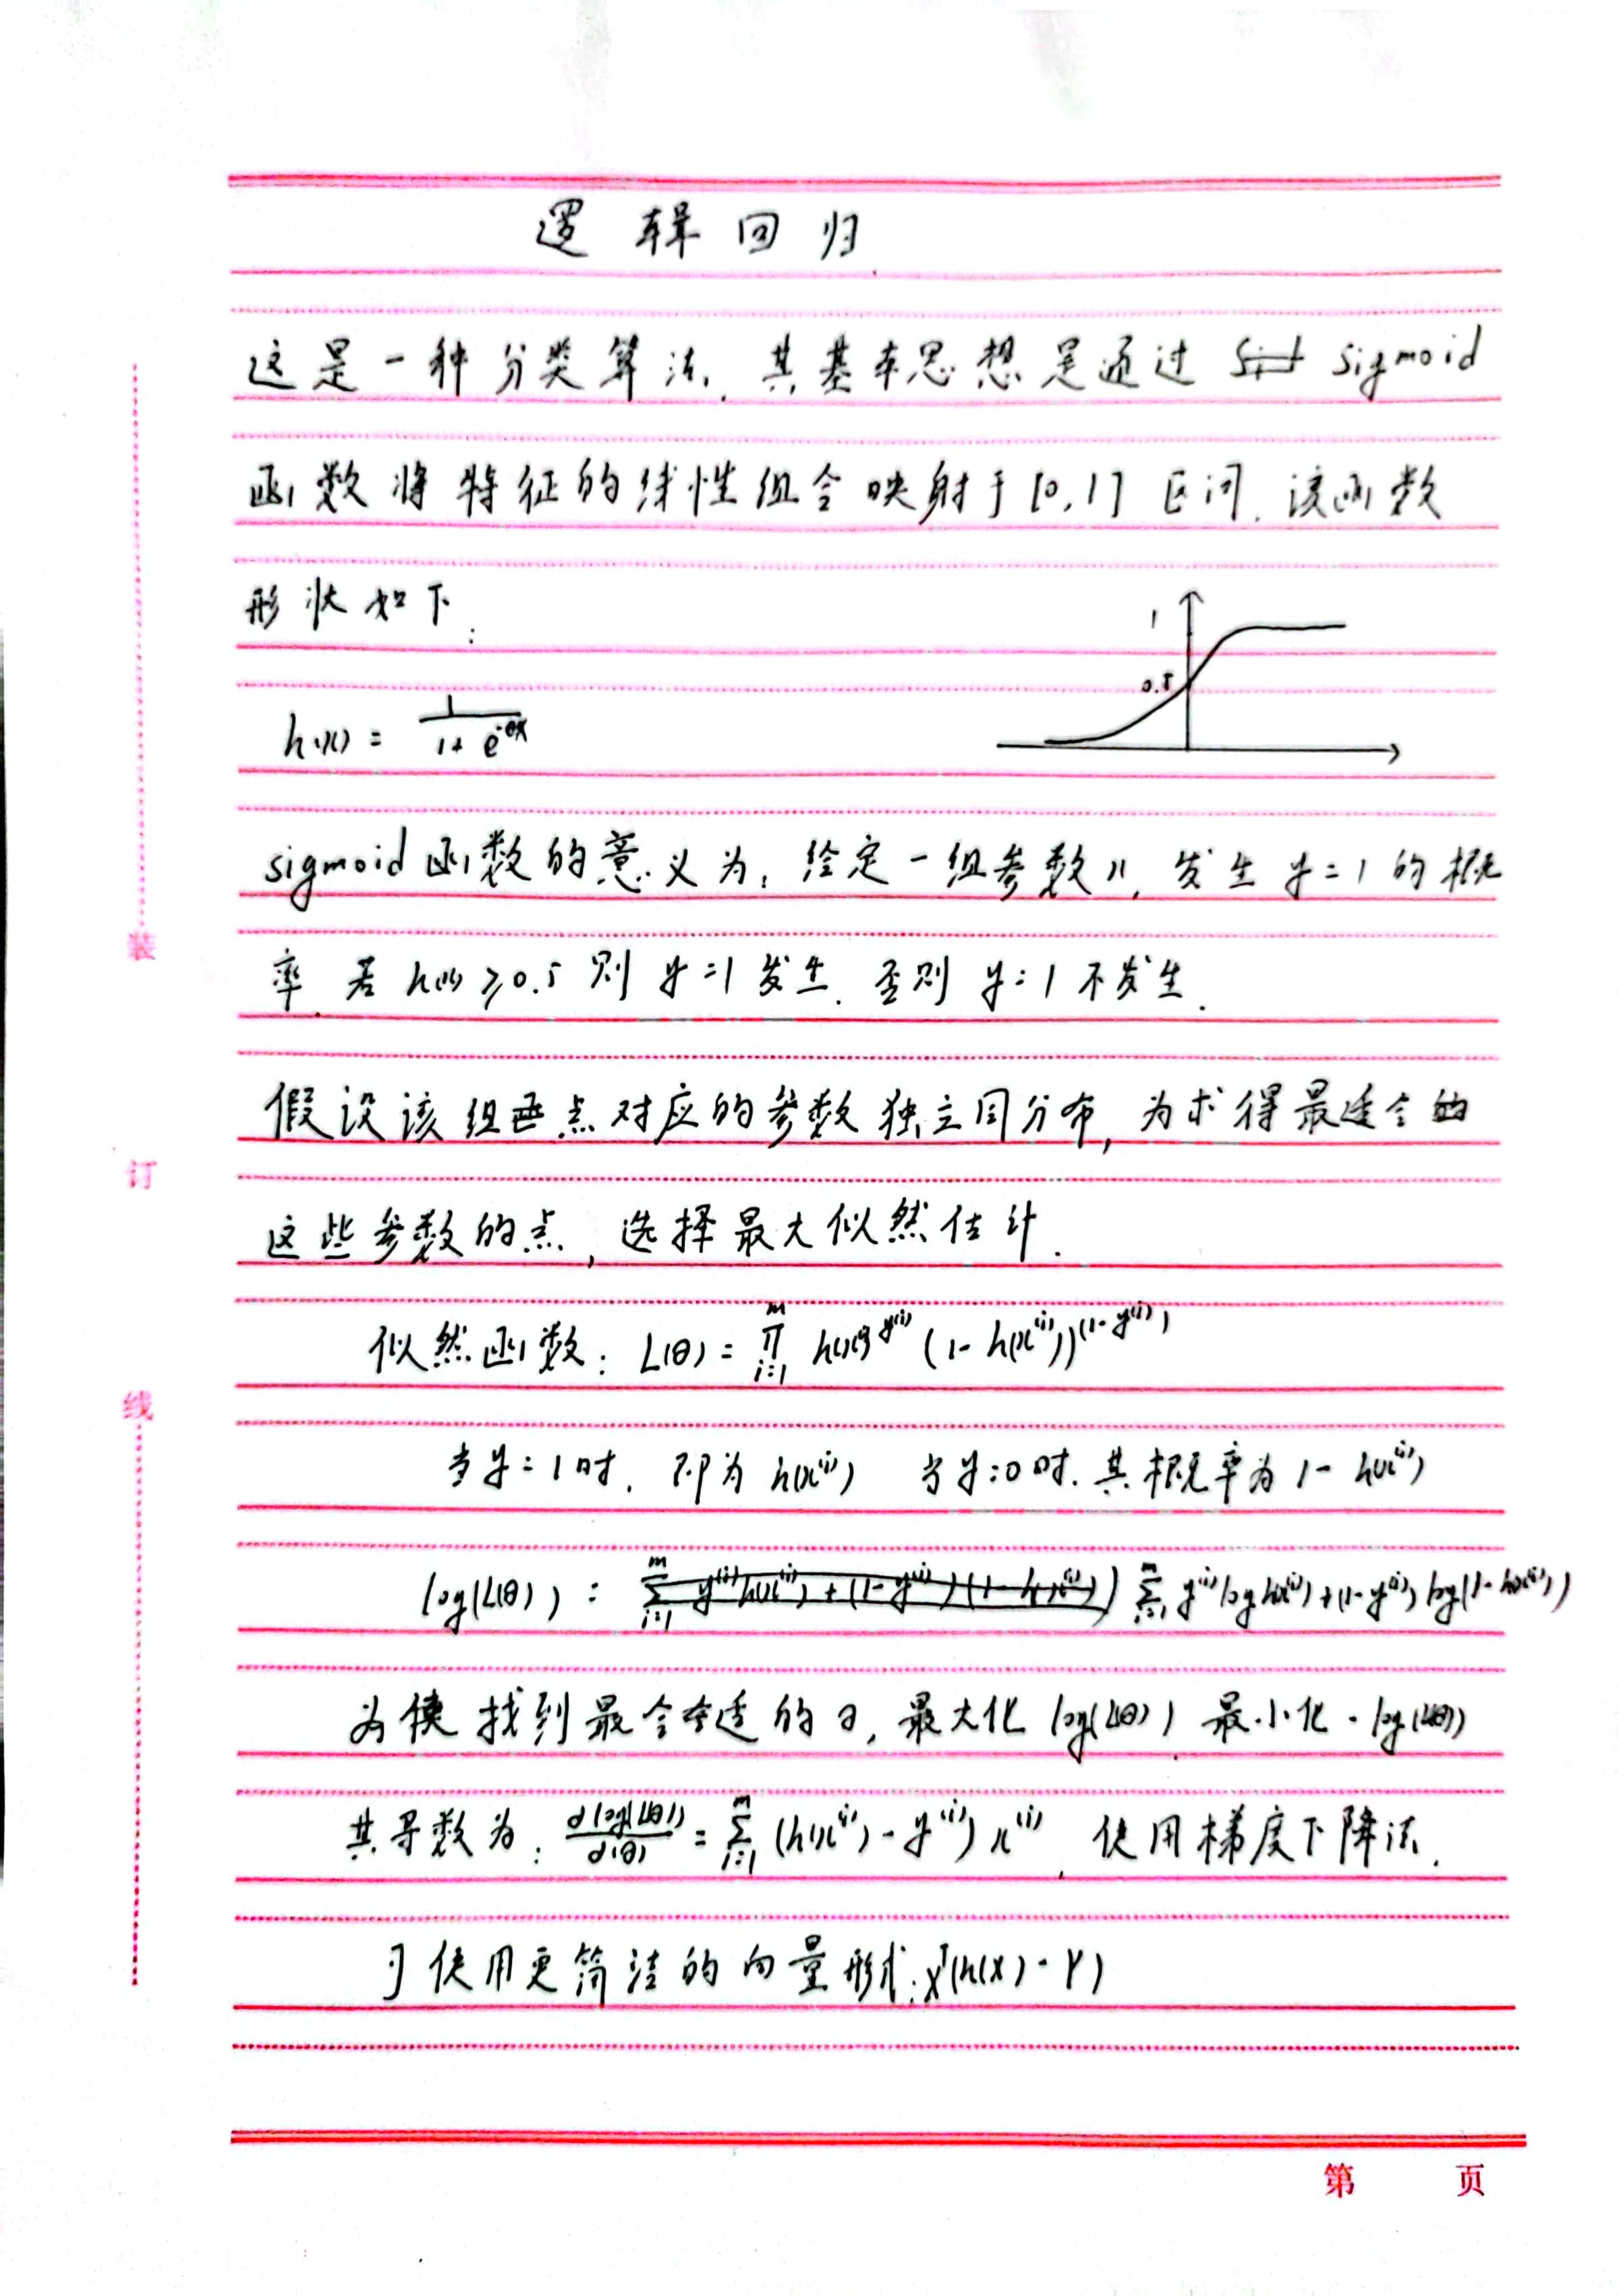 逻辑回归.
这是一种分类算法. 其基本思想是通过 sigmoid
函数将特征的线性组合映射于[0,1]区间. 该函数
形状如下:
1
0.5
h(x) = 1/(1+e^{-θx})
sigmoid函数的意义为: 给定一组参数x, 发生y=1的概
率. 若h(x)≥0.5则y=1发生. 否则y=1不发生.
假设该组 点对应的参数独立同分布, 为求得最适合的
这些参数的点, 选择最大似然估计.
似然函数: L(θ) = ∏_{i=1}^{m} h(x^{(i)})^{y^{(i)}} (1-h(x^{(i)}))^{(1-y^{(i)})}
当y=1时. 即为h(x^{(i)}) 当y=0时. 其概率为1-h(x^{(i)})
log(L(θ)) = ∑_{i=1}^{m} y^{(i)} log h(x^{(i)}) + (1-y^{(i)}) log(1-h(x^{(i)}))
为使找到最合适的θ, 最大化log(L(θ)) 最小化-log(L(θ))
其导数为: d(log(L(θ)))/d(θ) = ∑_{i=1}^{m} (h(x^{(i)}) - y^{(i)}) x^{(i)}, 使用梯度下降法.
可使用更简洁的向量形式: X^T(h(X)-Y)
装
订
线
第 页